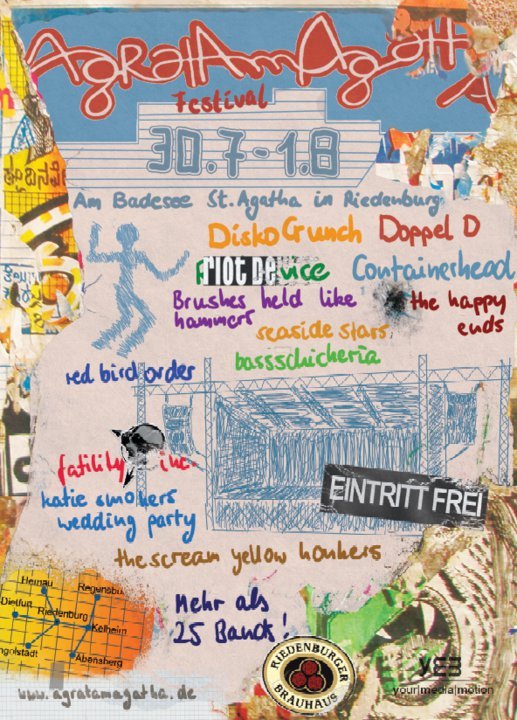 AgRatAmAgatHA
Festival
30.7-1.8
Am Badesee St. Agatha in Riedenburg
Disko Crunch Doppel D
RIOT De Containerhead
Brushes held like
hammers
the happy
ends
seaside stars
bassschickeria
red bird order
fatility inc.
katie smokers
wedding party
EINTRITT FREI
the scream yellow honkers
Mehr als
25 Bands!
Hemau
Regensbu
Dietfurt
Riedenburg
Kelheim
ngolstadt
Abensberg
RIEDENBURGER
BRAUHAUS
your|media|motion
www.agratamagatha.de